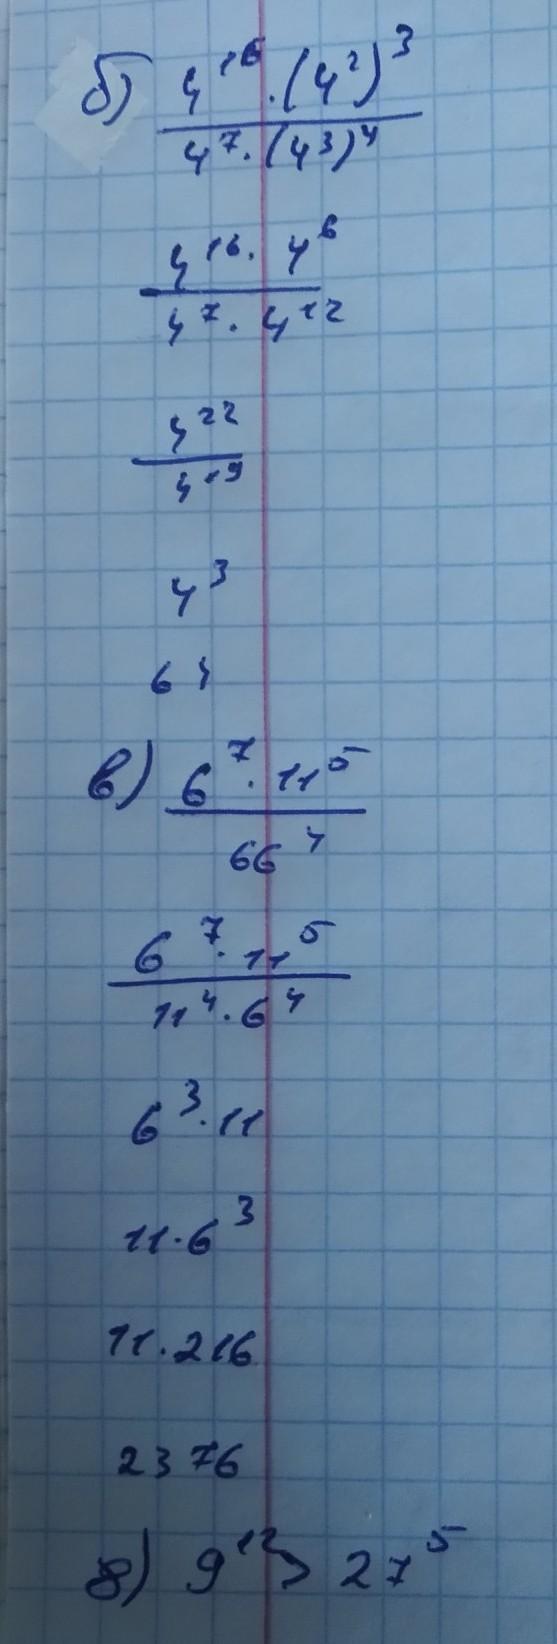 б) 4^16 · (4^2)^3
4^7 · (4^3)^4
4^16 · 4^6
4^7 · 4^12
4^22
4^19
4^3
64
в) 6^7 · 11^5
66^4
6^7 · 11^5
11^4 · 6^4
6^3 · 11
11 · 6^3
11 · 216
2376
8) 9^12 > 27^5